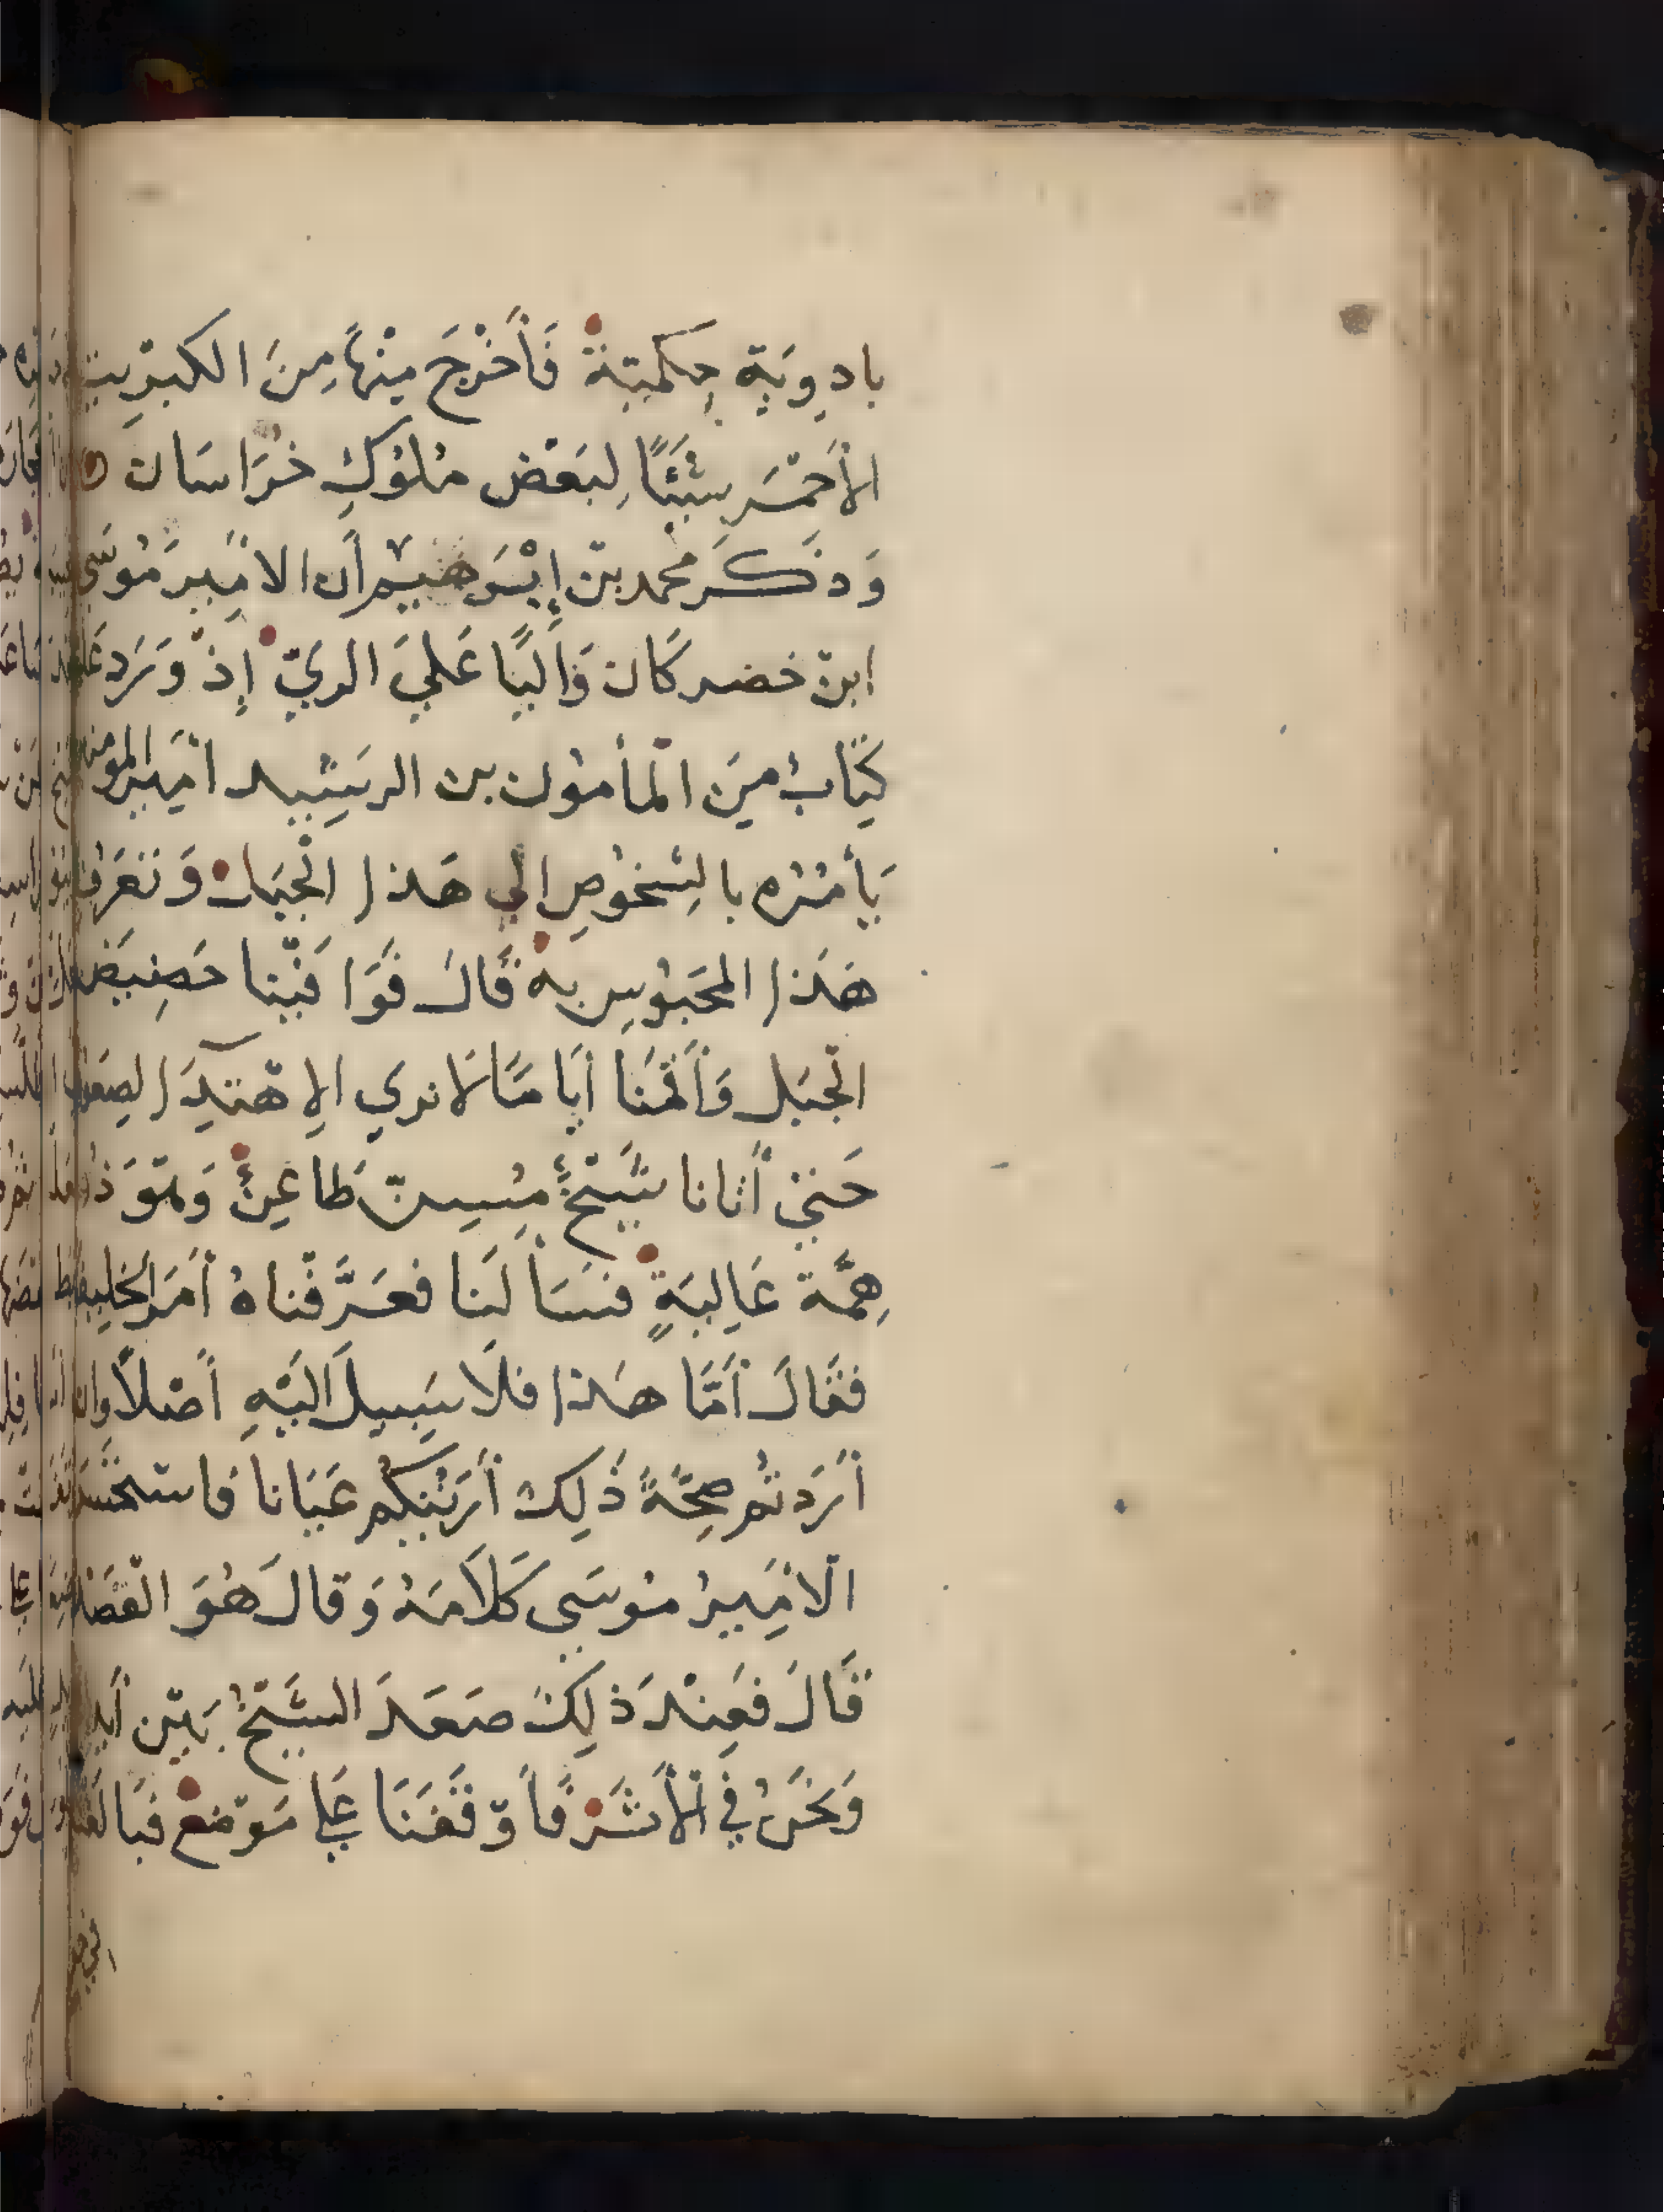 بادوِيَةٍ حِكمِيّةْ فَأَخْرَجَ مِنْهَا مِنَ الكبْرِيت
الأَحْمَرِ شَيْئًا لِبَعْض مُلُوكِ خُرَاسَان
وَذَكَرَ محمد بْن إِبْرَهِيْم أَن الأَمِير مُوسَي
ابْن خضر كَان وَالِيًا عَلَيَ الريّ إِذْ وَرَد عَليه
كِتَابُ مِنَ الْمأمُون بن الرشِيد امِير المومنين
يَأمُرُه بالشخُوصِ الي هَذا الْجبَل وَتَعَرف
هَذا المحَبُوس به قَالَ فَوَافَيْنا حَضِيَض
الْجبَل وَأَقَمْنَا أيَامًا لَا ندري الإهْتِدَا لِصعُوده
حَتي أَتَانا شَيْخٌ مُسِنّ طَاعِنٌ وَهْوَ ذُو
هِمَّة عَالِيَةٍ فَسَأَلَنا فعَرَّفْناهُ أمَرَ الخلِيفة
فقَالَ أَمَّا هَذا فلَا سَبِيلَ الَيْهِ أَصْلاً وان
أَرَدتُم صِحَّةَ ذَلِكَ أَرَيْتكُم عَيَانا فَاستحْسَن
الامِيرُ مُوسَي كَلَامَهُ وَقالَ هُوَ الْقَصْد
قَالَ فعِنْدَ ذَلِكَ صَعَدَ الشَيْخُ بَيْن أيدينا
وَنَحْنُ فِي الأَثَرْ فَأَوْقَفَنَا عَلي مَوْضع فبَالَغنا